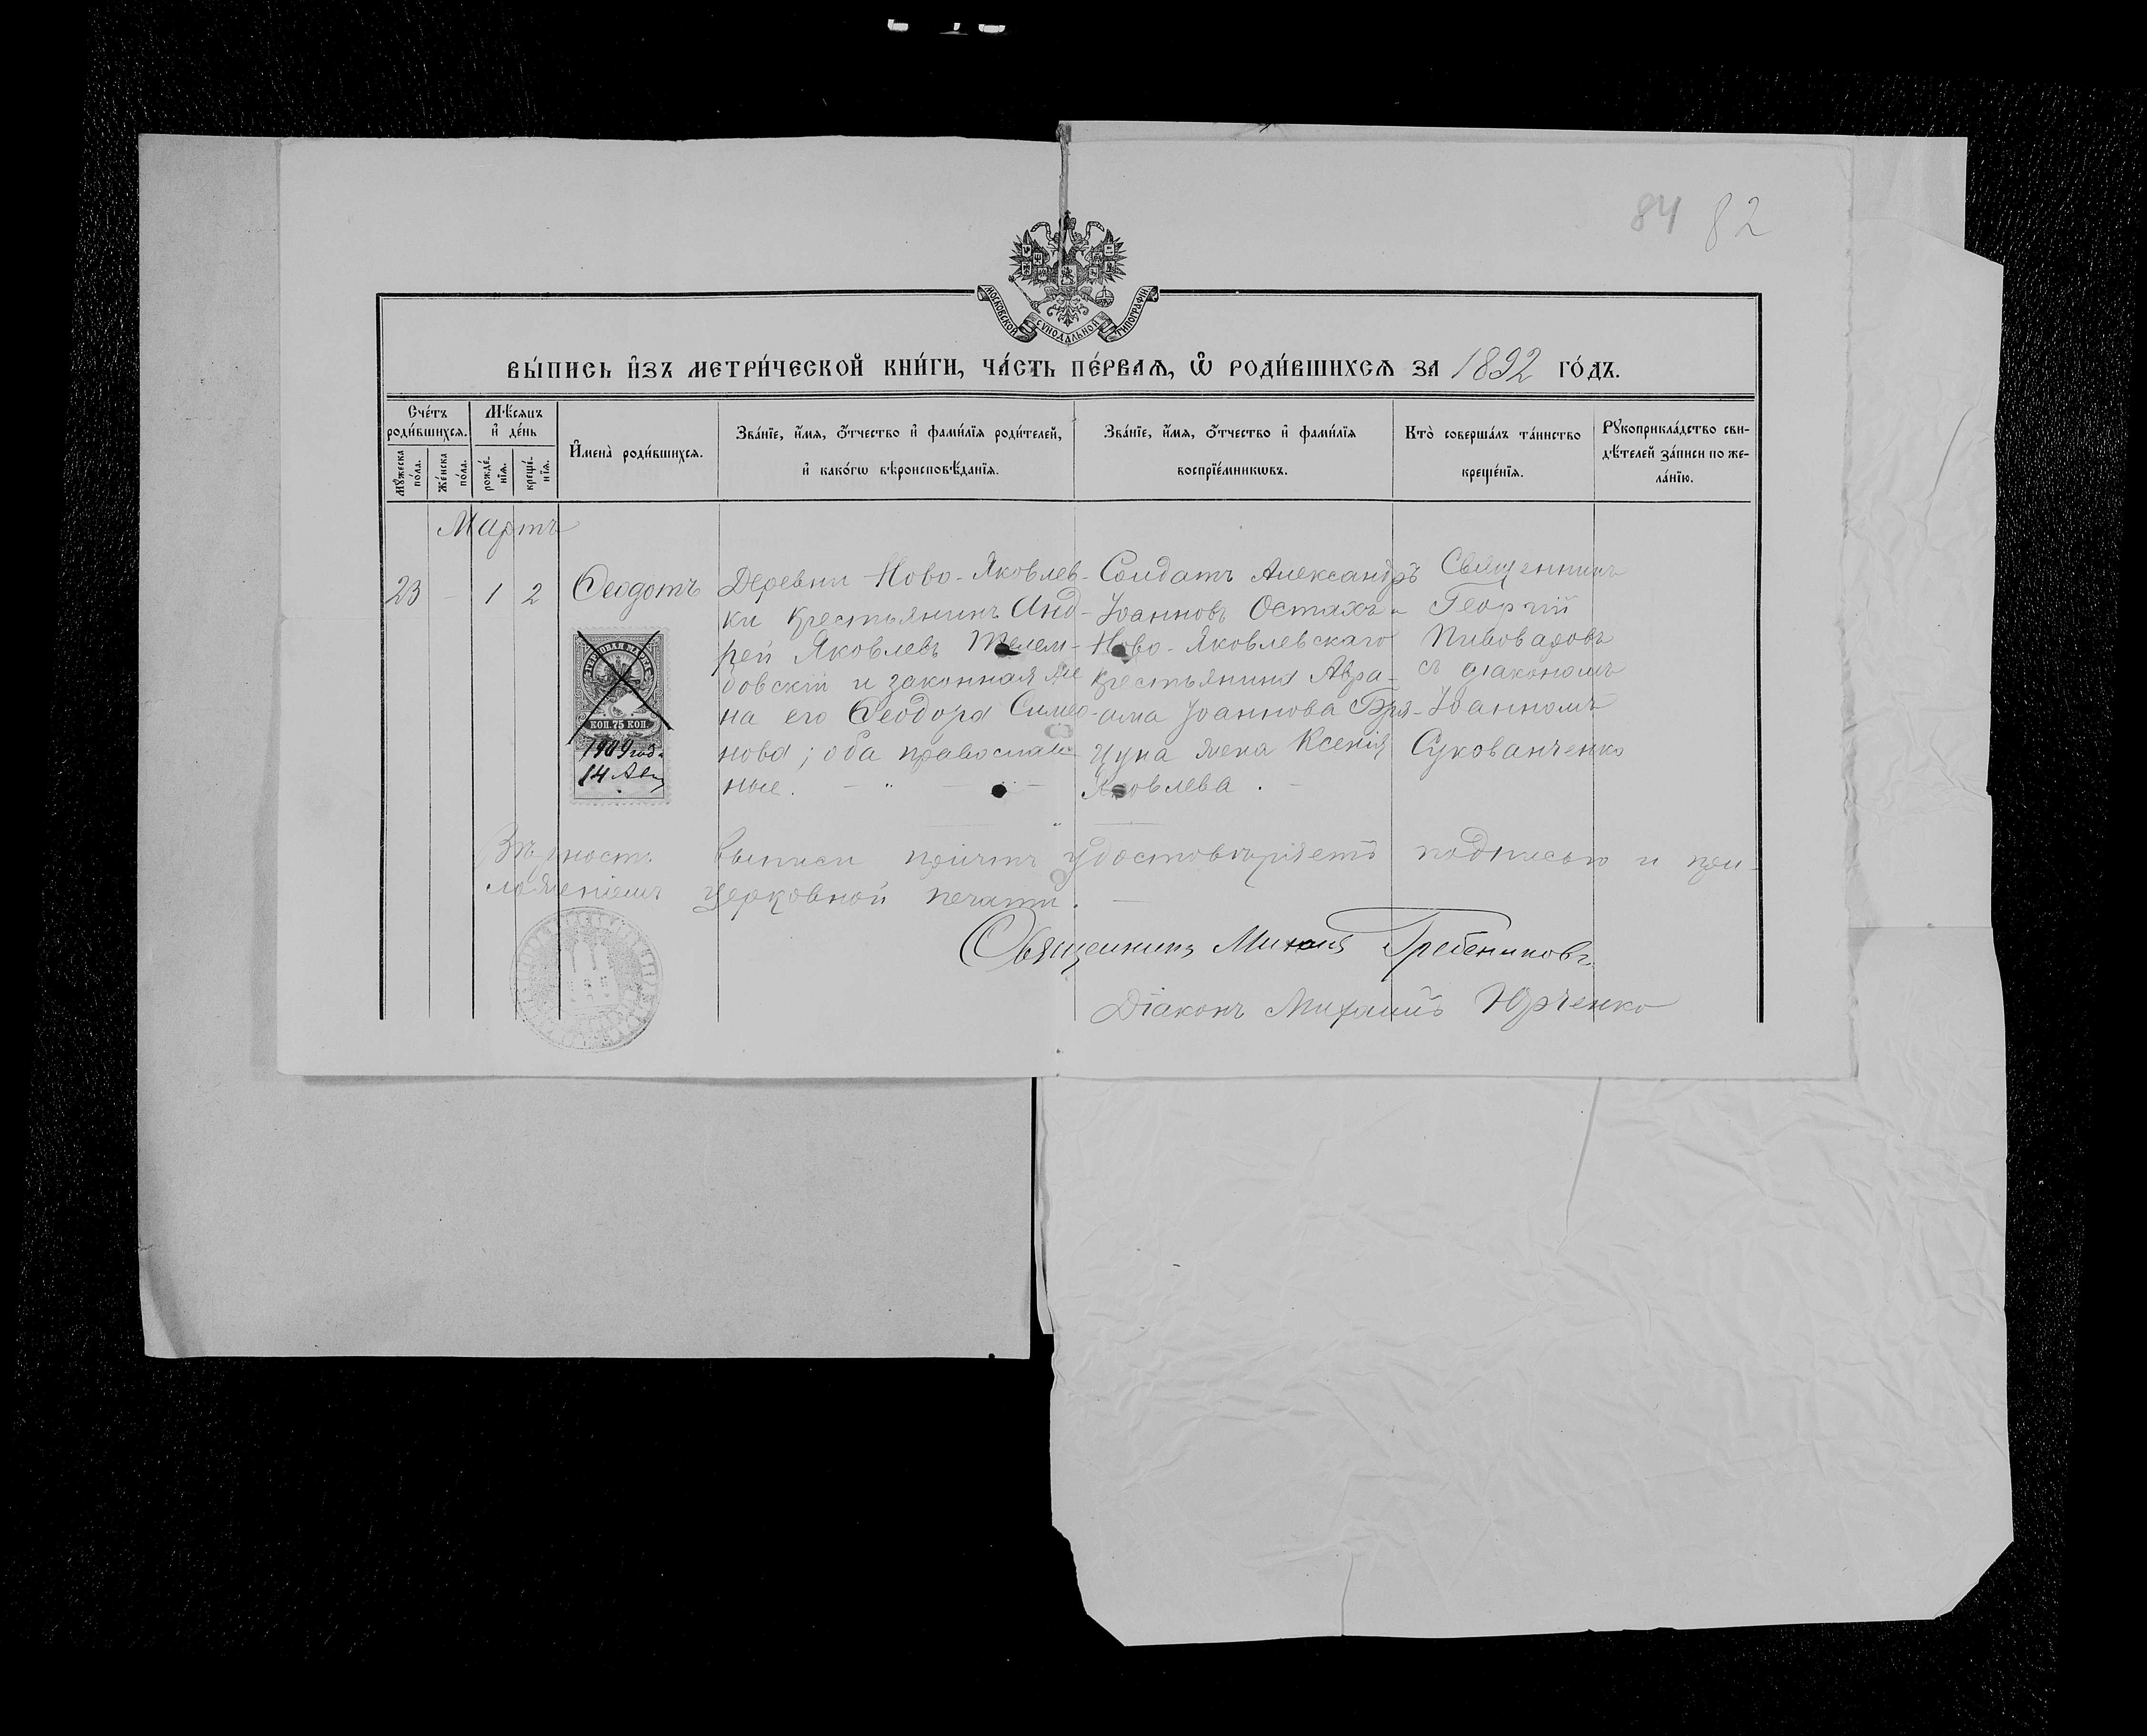 84 82
МОСКОВСКОЙ СУНОДАЛЬНОЙ ТИПОГРАФІИ
ВЫ́ПИСЬ И҆ЗЪ МЕТРИ́ЧЕСКОЙ КНИ́ГИ, ЧА́СТЬ ПЕ́РВАѦ, Ѽ РОДИ́ВШИХСѦ ЗА 1892 ГО́ДЪ.
Сче́тъ роди́вшихсѧ.
Мꙋ́жеска по́ла.
Же́нска по́ла.
Мѣ́сѧцъ и҆ де́нь
рожде́нїѧ.
креще́нїѧ.
И҆мена̀ роди́вшихсѧ.
Зва́нїе, и҆́мѧ, ѻ҆́тчество и҆ фами́лїѧ роди́телей,
и҆ како́гѡ вѣроисповѣ́данїѧ.
Зва́нїе, и҆́мѧ, ѻ҆́тчество и҆ фами́лїѧ
воспрїе́мникѡвъ.
Кто̀ соверша́лъ та́инство
креще́нїѧ.
Рꙋкоприкла́дство сви-
дѣ́телей за́писи по же-
ла́нїю.
Мартъ
23 - 1 2
Ѳеодотъ
КОП. 75 КОП.
1909 год.
14 Авг
Деревни Ново-Яковлев-
ки крестьянинъ Анд-
рей Яковлевъ
и законная же
на его Ѳеодора Симео-
нова; оба православ
ные.
Солдатъ Александръ
Іоанновъ Остахъ и
Ново-Яковлевскаго
крестьянина Авра-
ама Іоаннова Бря-
цуна жена Ксенія
Яковлева.
Священникъ
Георгій
Пивоваровъ
съ діакономъ
Іоанномъ
Сукованченко
Вѣрность выписи причтъ удостовѣряетъ подписью и при-
ложеніемъ церковной печати.
Священникъ Гребениковъ.
Діаконъ Михаилъ Юрченко